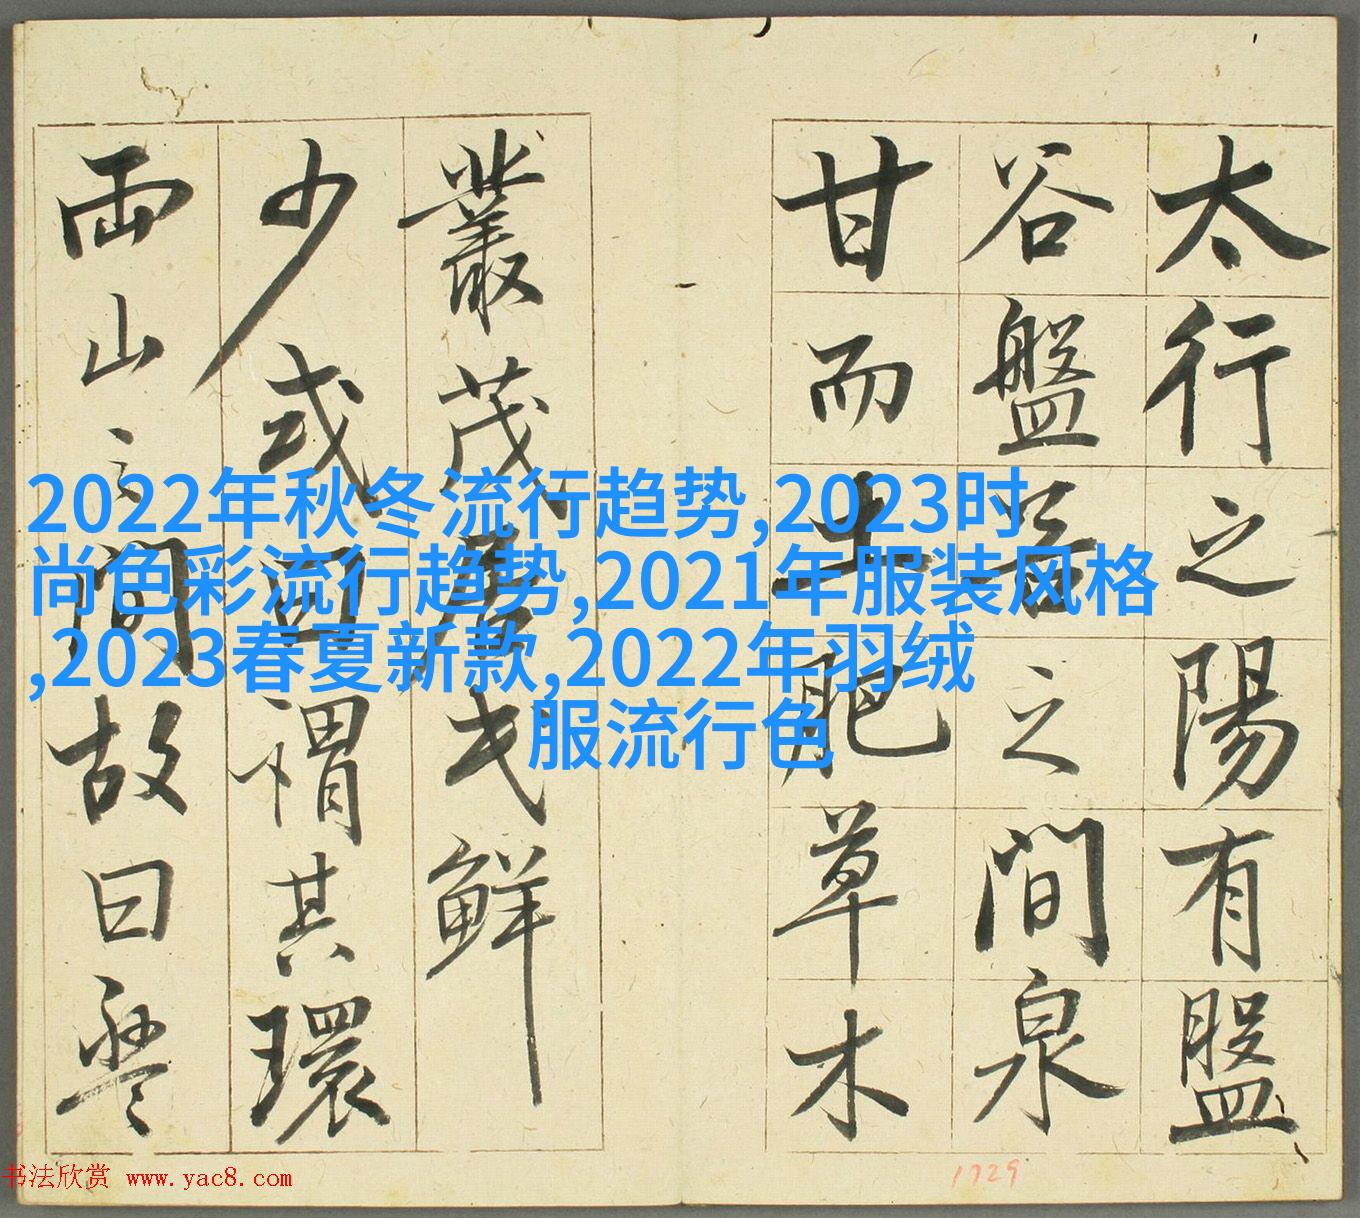 太行之陽有盤
谷盤谷之間泉
甘而土肥草木
叢茂居民鮮
少或曰謂其環
兩山之間故曰盤
2022年秋冬流行趋势,2023时
尚色彩流行趋势,2021年服装风格
,2023春夏新款,2022年羽绒
服流行色
书法欣赏 www.yac8.com
1729